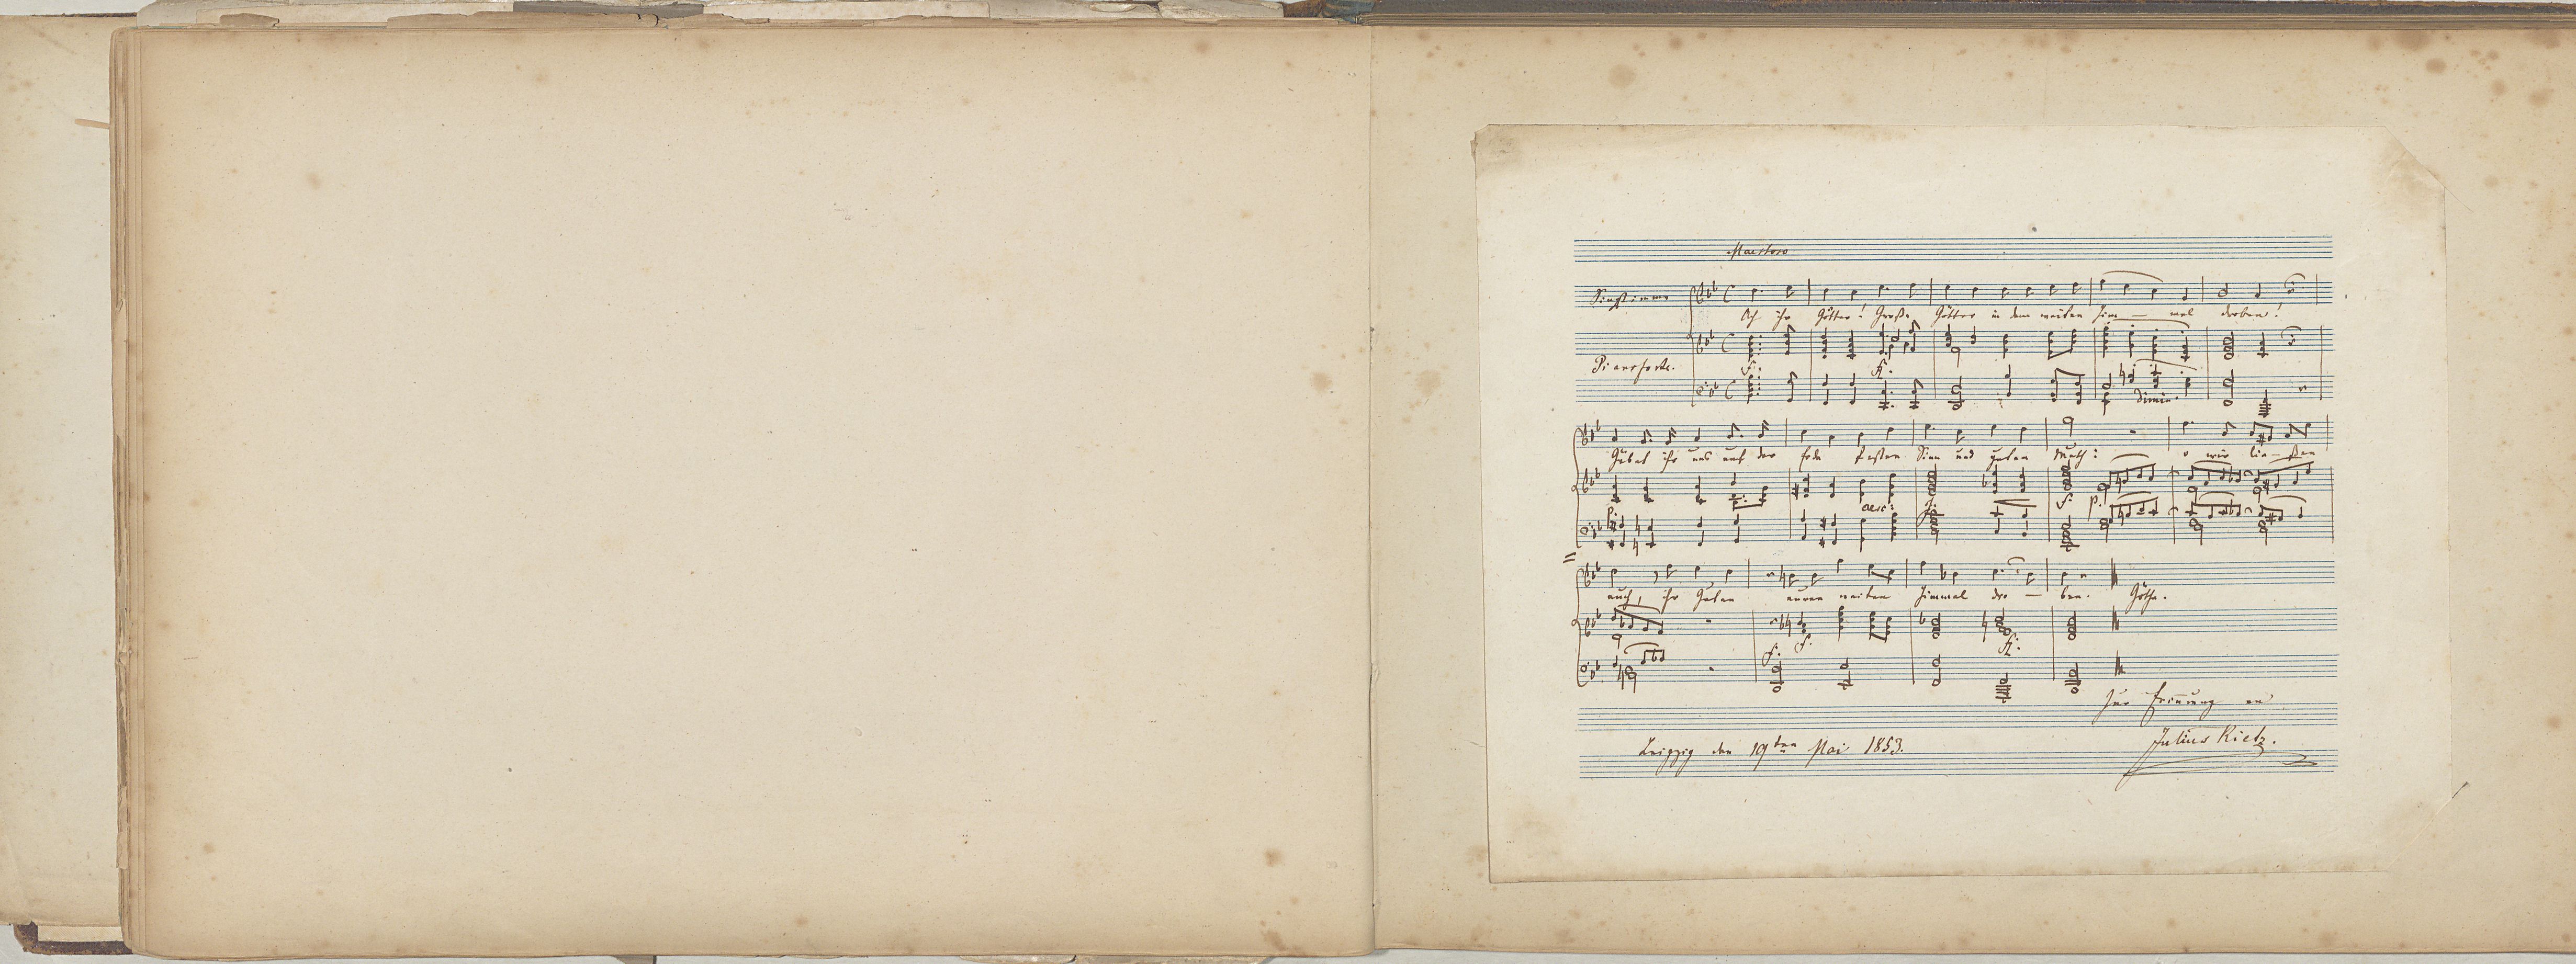 Maestoso
Singstimme
Ach ihr Götter! Große Götter in dem weiten Him — mel droben!
Pianoforte.
f. ff.
dimin.
Gäbet ihr uns auf der Erde festen Sinn und guten Muth: o wir lie—ßen
p. cresc: f. f. p.
euch, ihr Guten euren weiten Himmel dro — ben. Göthe.
f. f. ff.
Zur Erinnrung an
Leipzig den 19ten Mai 1853. Julius Rietz.